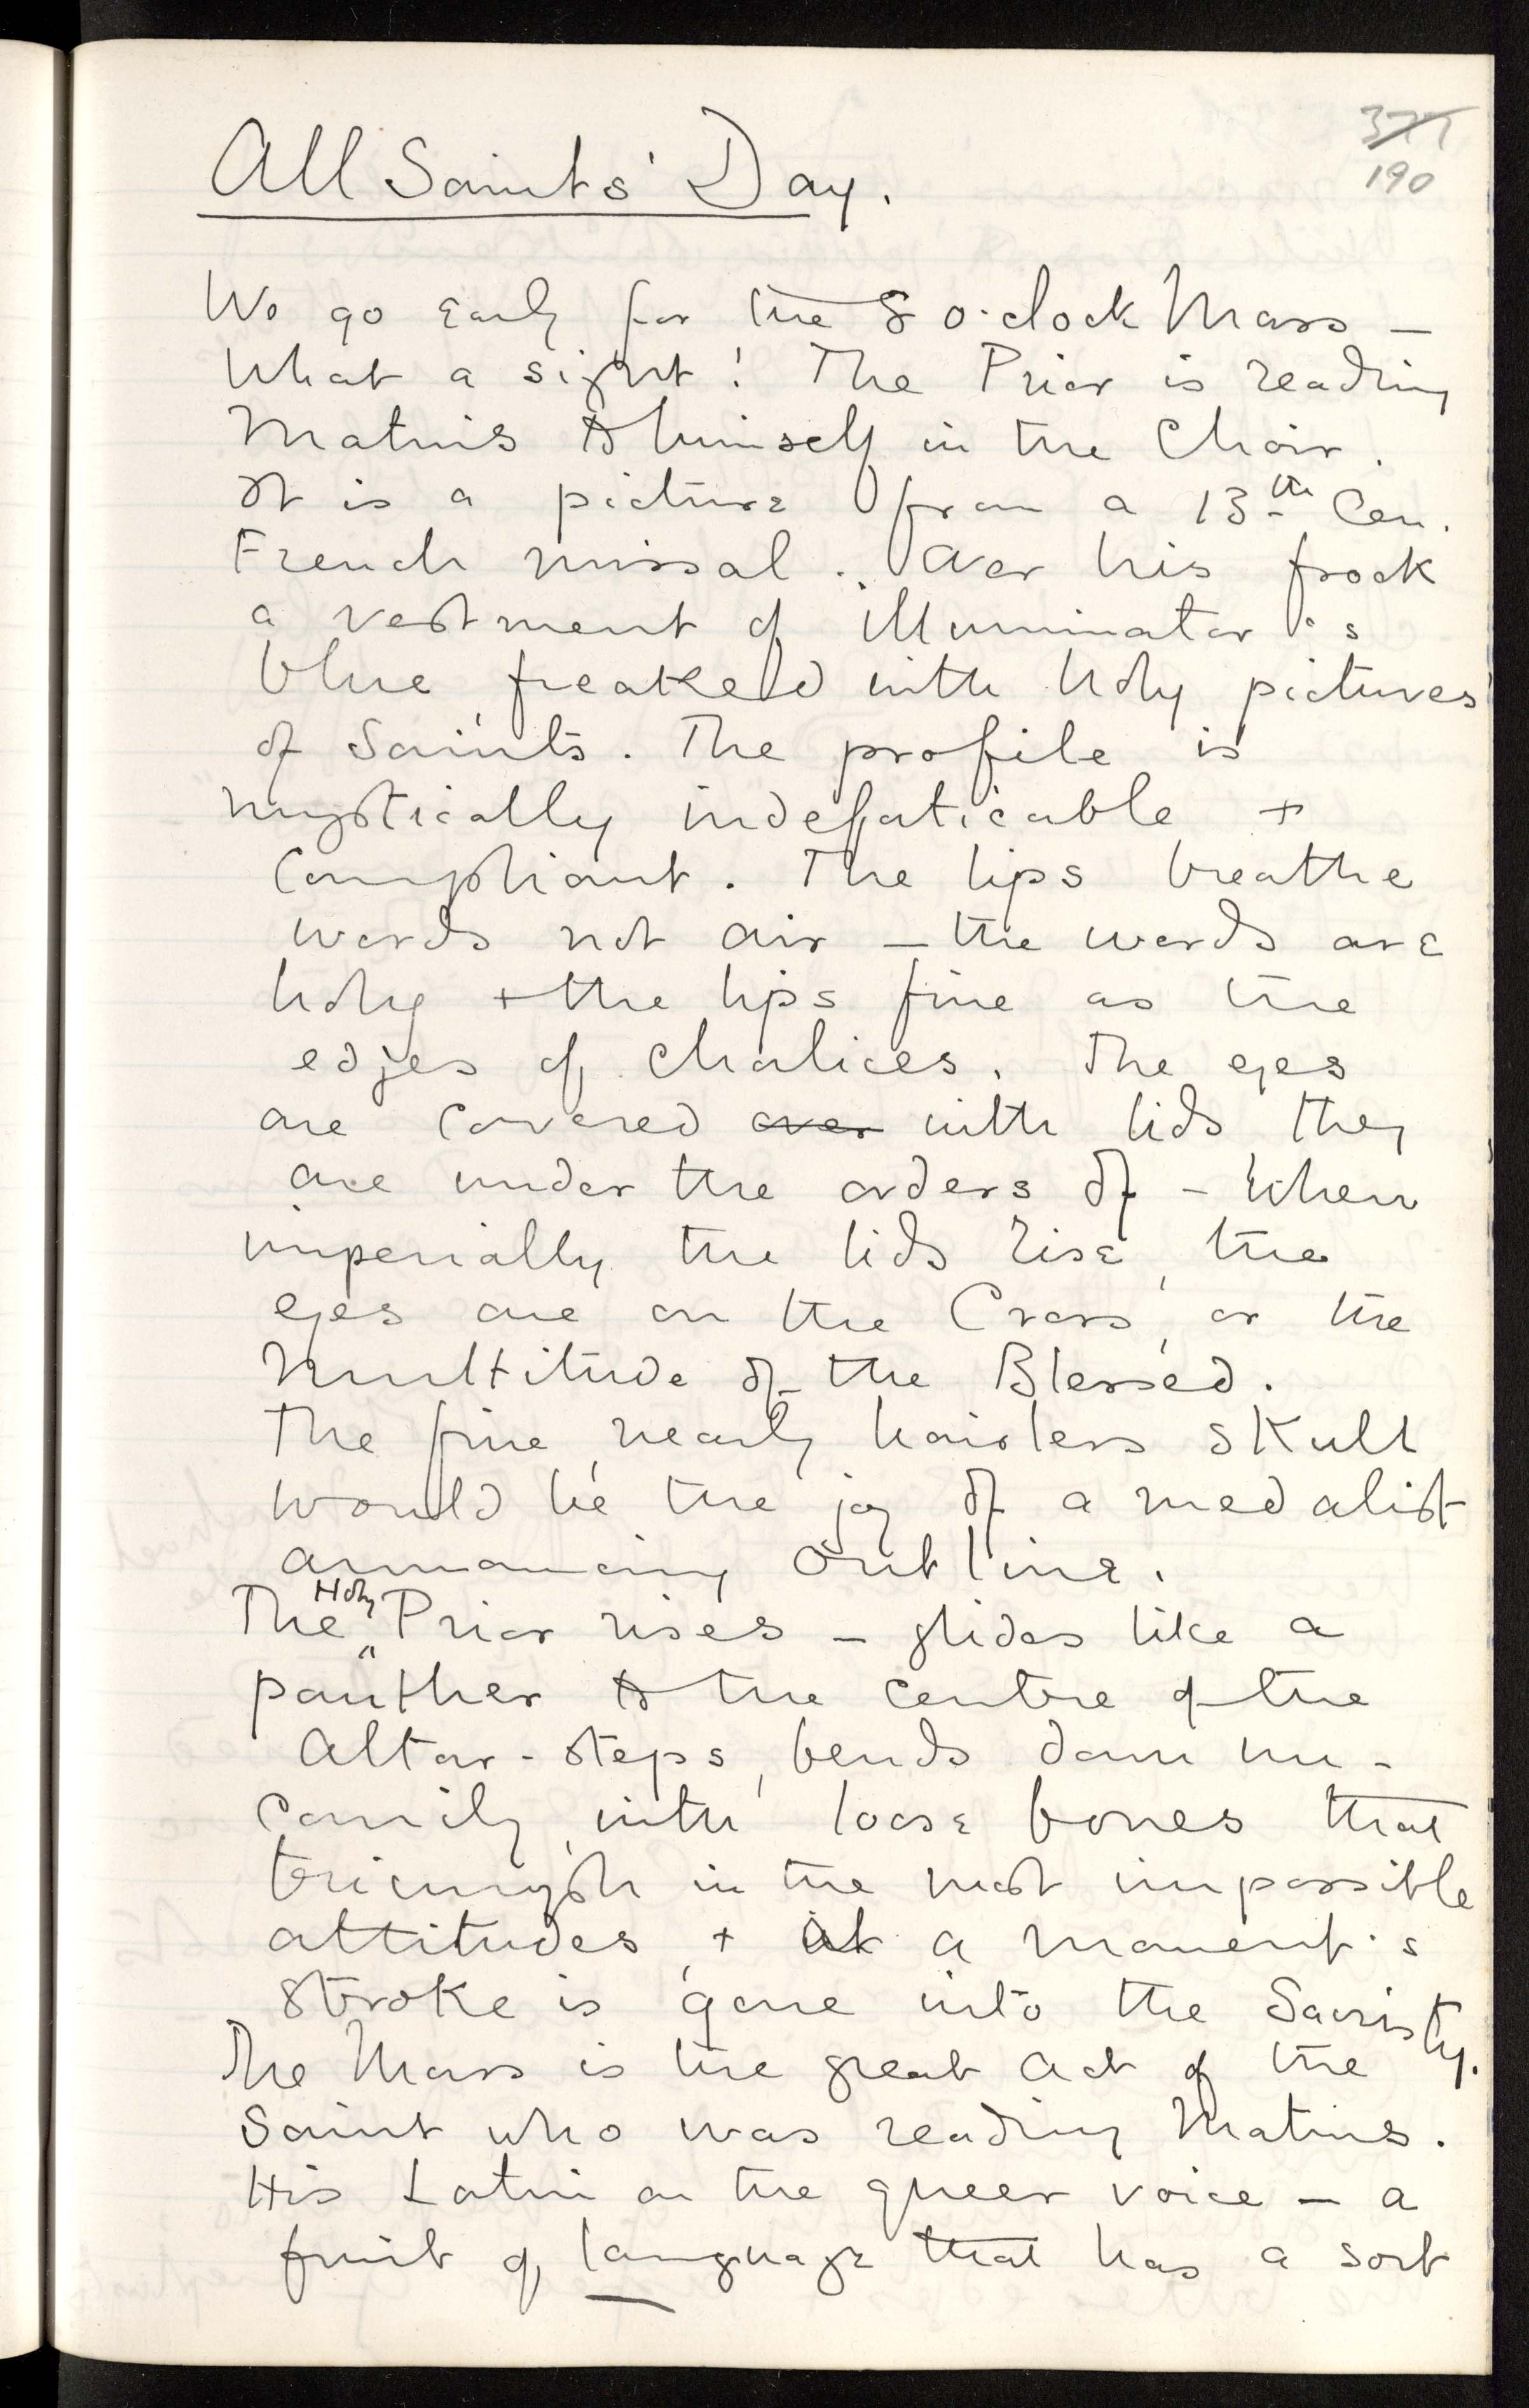 377
190
All Saints' Day.
We go early for the 8 o'clock Mass –
What a sight! The Prior is reading
Matins to himself in the Choir.
It is a picture from a 13th Cen.
French missal. Over his frock
a vestment of illuminator's
blue, freaked with holy pictures
of Saints. The profile is
mystically indefaticable +
compliant. The lips breathe
words not air – the words are
holy + the lips fine as the
edges of chalices. The eyes
are covered over with lids they
are under the orders of – when
imperially the lids rise, the
eyes are on the Cross, or the
Multitude of the Blessed.
The fine, nearly hairless skull
would be the joy of a medalist
announcing outline.
The Holy Prior rises – glides like a
panther to the centre of the
Altar-steps, bends down un-
cannily, with loose bones that
triumph in the most impossible
attitudes, + at a moment's
stroke is gone into the Sacristy.
The Mass is the great act of the
Saint who was reading Matins.
His Latin on the queer voice – a
fruit of language that has a sort